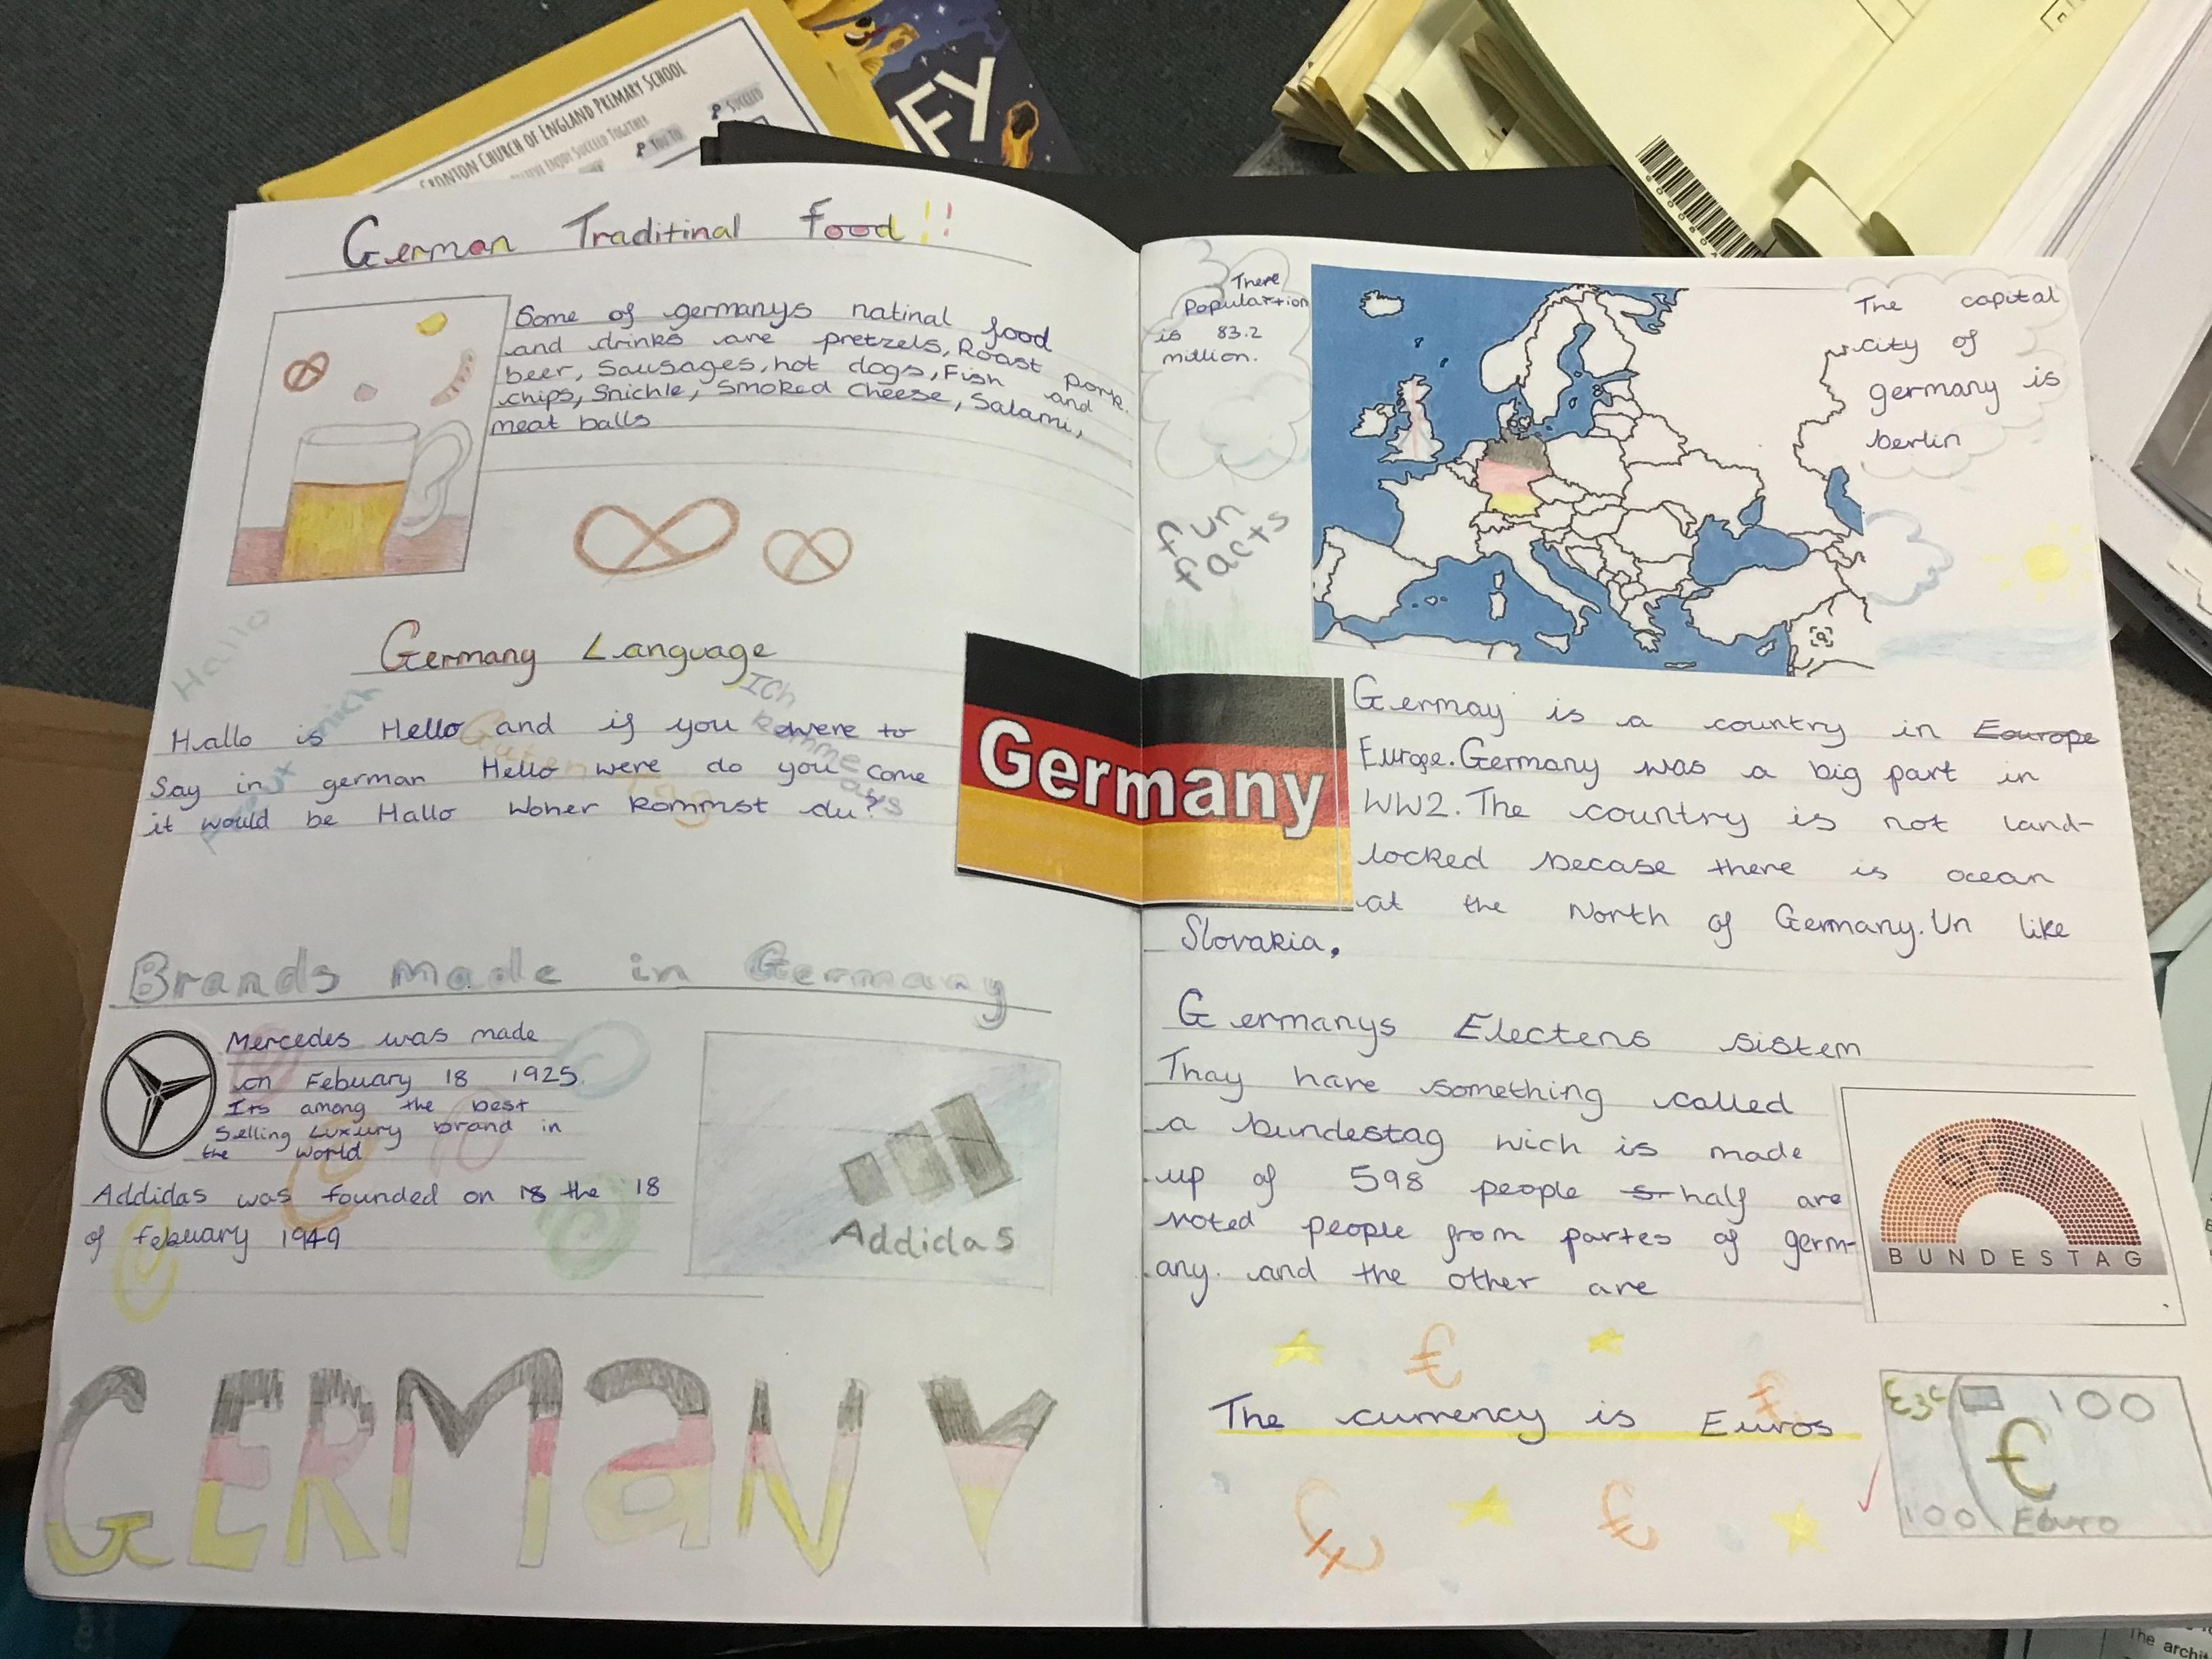 CRONTON CHURCH OF ENGLAND PRIMARY SCHOOL
ENJOY SUCCEED TOGETHER
SUCCEED
YOU TO
German Traditinal food!!
Some of germanys natinal food
and drinks are pretzels, Roast pork.
beer, Sausages, hot dogs, Fish and
chips, Snichle, Smoked cheese, Salami,
meat balls
Hallo
Germany Language
mich
Ich
komme
aus
Guten
Tag
Hallo is Hello and if you were to
Say in german Hello were do you come
it would be Hallo Woher kommst du?
Brands made in Germany
Mercedes was made
on Febuary 18 1925.
Its among the best
Selling Luxury brand in
the world
Addidas was founded on 18 the 18
of febuary 1949
Addidas
GERMaNY
There
Populartion
is 83.2
million.
The capital
city of
germany is
berlin
fun
facts
Germany
Germay is a country in Eourope
Europe. Germany was a big part in
WW2. The country is not land-
locked becase there is ocean
at the North of Germany. Un like
Slovakia.
Germanys Electens sistem
Thay have something called
a bundestag wich is made
up of 598 people s half are
voted people from partes of germ-
any. and the other are
BUNDESTAG
The currency is Euros
100
€
100 Eouro
The archi